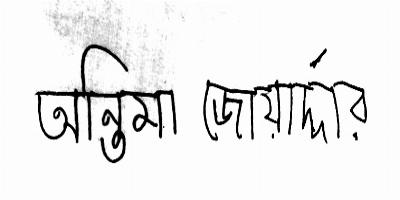 অন্তিমা জোয়ার্দ্দার